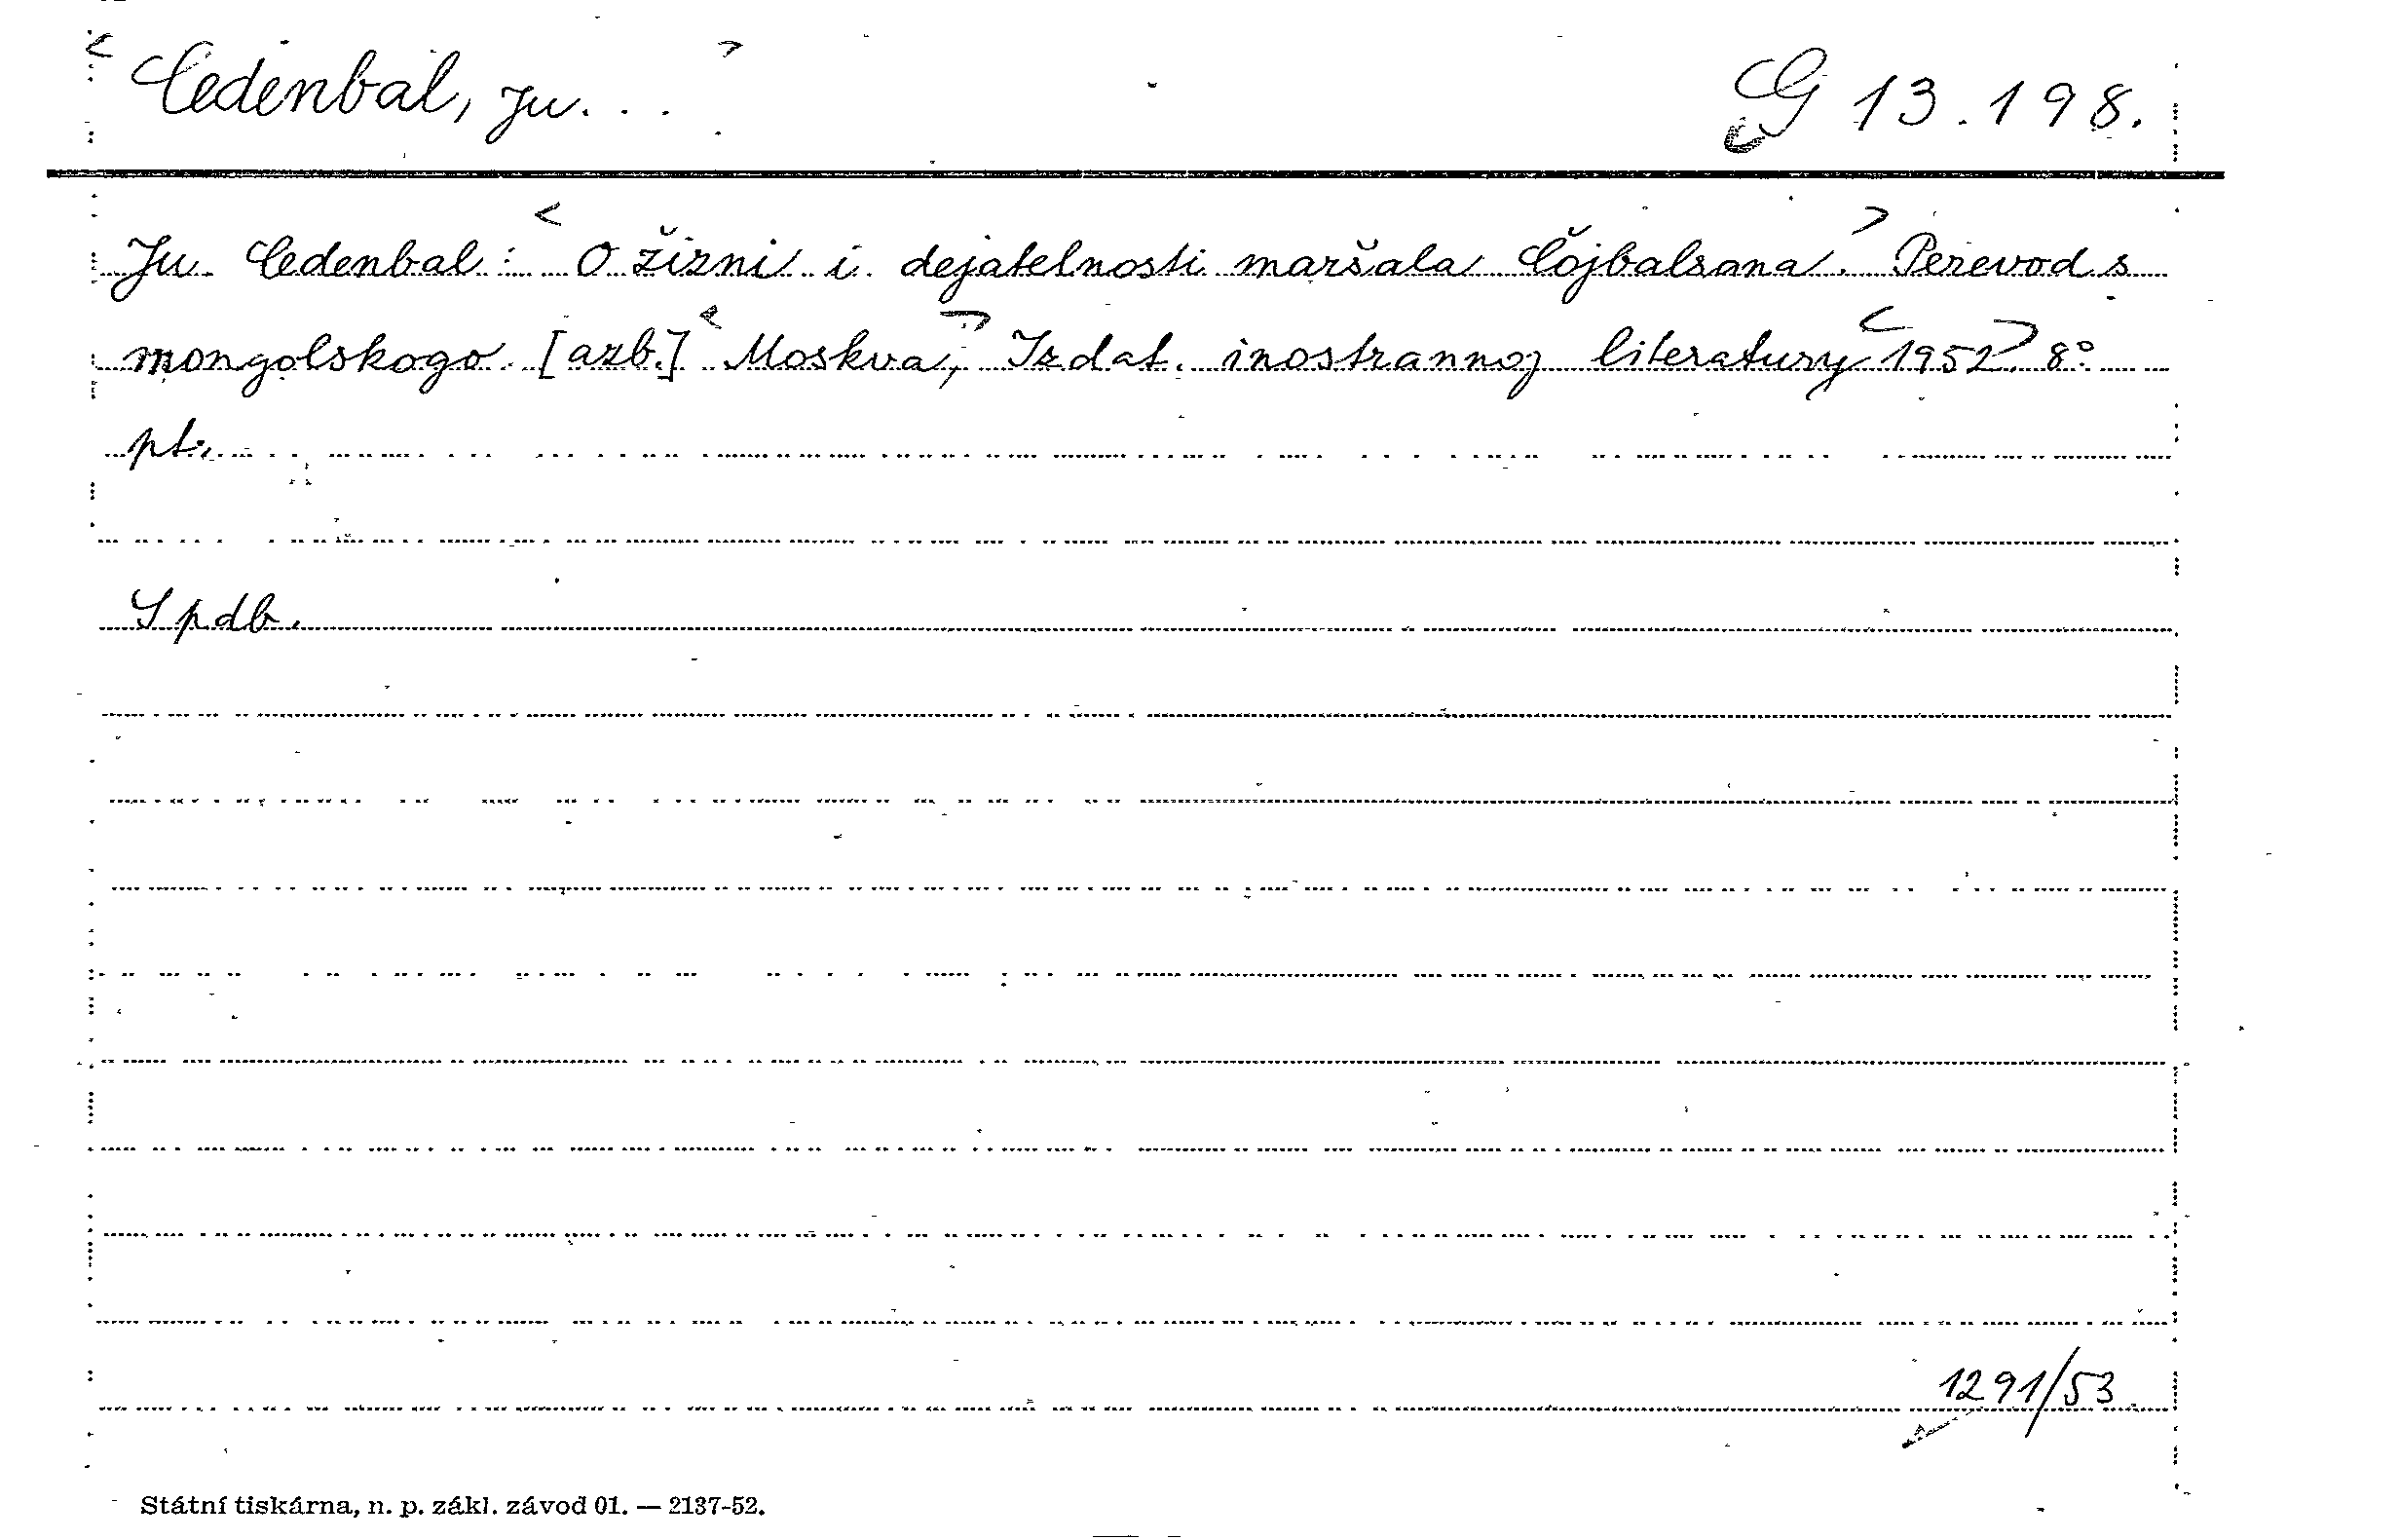 Cedenbal, Ju. . .
G 13.198.
Ju. Cedenbal: O žizni i dejatelnosti maršala Čojbalsana. Perevod s
mongolskogo. [azb.] Moskva, Izdat. inostrannoj literatury 1952. 8°
pt.
Spdb.
1291/53.
Státní tiskárna, n. p. zákl. závod 01. — 2137-52.